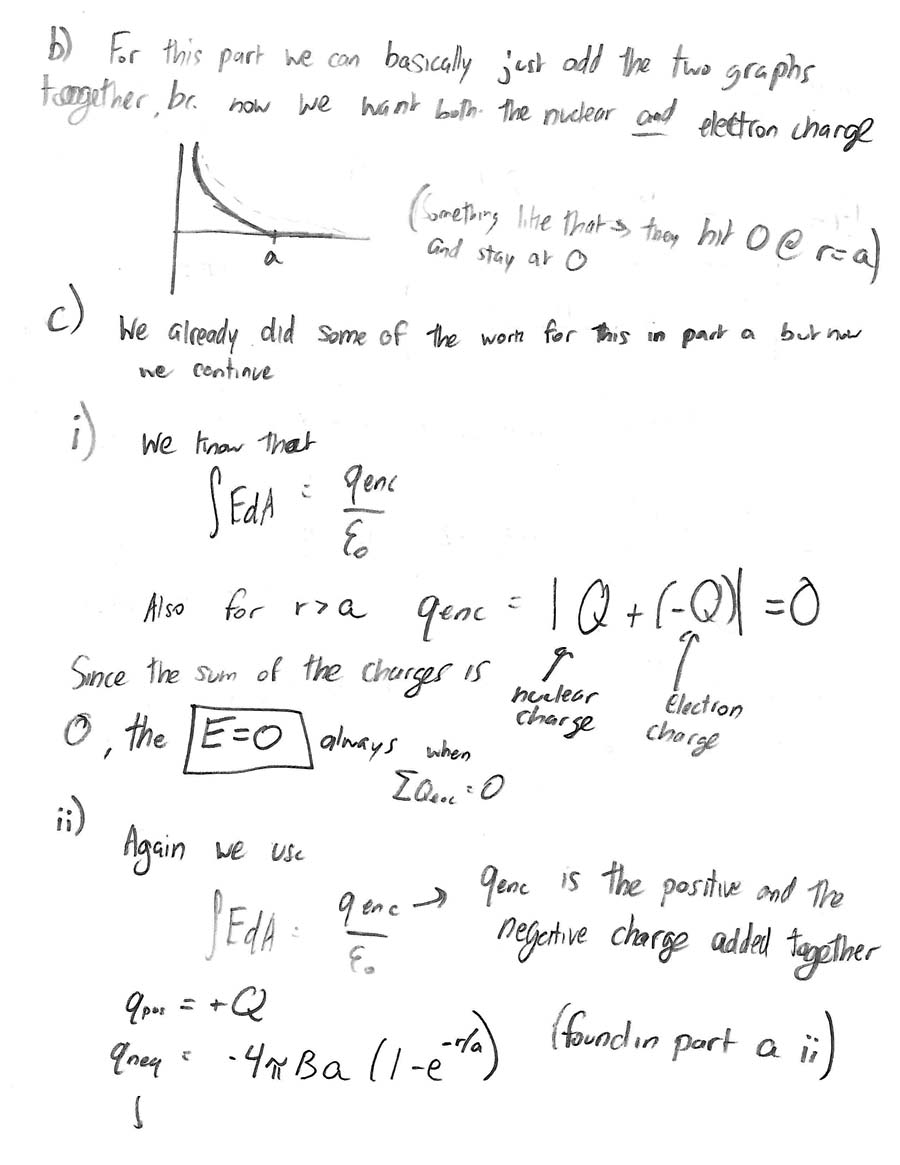 b) For this part we can basically just add the two graphs
together, bc. now we want both the nuclear and electron charge
a
(Something like that → they hit 0 @ r=a)
and stay at 0
c) We already did some of the work for this in part a but now
we continue
i) We know that
∫EdA = qenc/ε₀
Also for r>a qenc = |Q + (-Q)| = 0
Since the sum of the charges is
nuclear charge
Electron charge
0, the E=0 always when
ΣQenc = 0
ii) Again we use
∫EdA = qenc/ε₀ → qenc is the positive and the
negative charge added together
qpos = +Q
qneg = -4πBa(1-e^(-r/a)) (found in part a ii)
∫